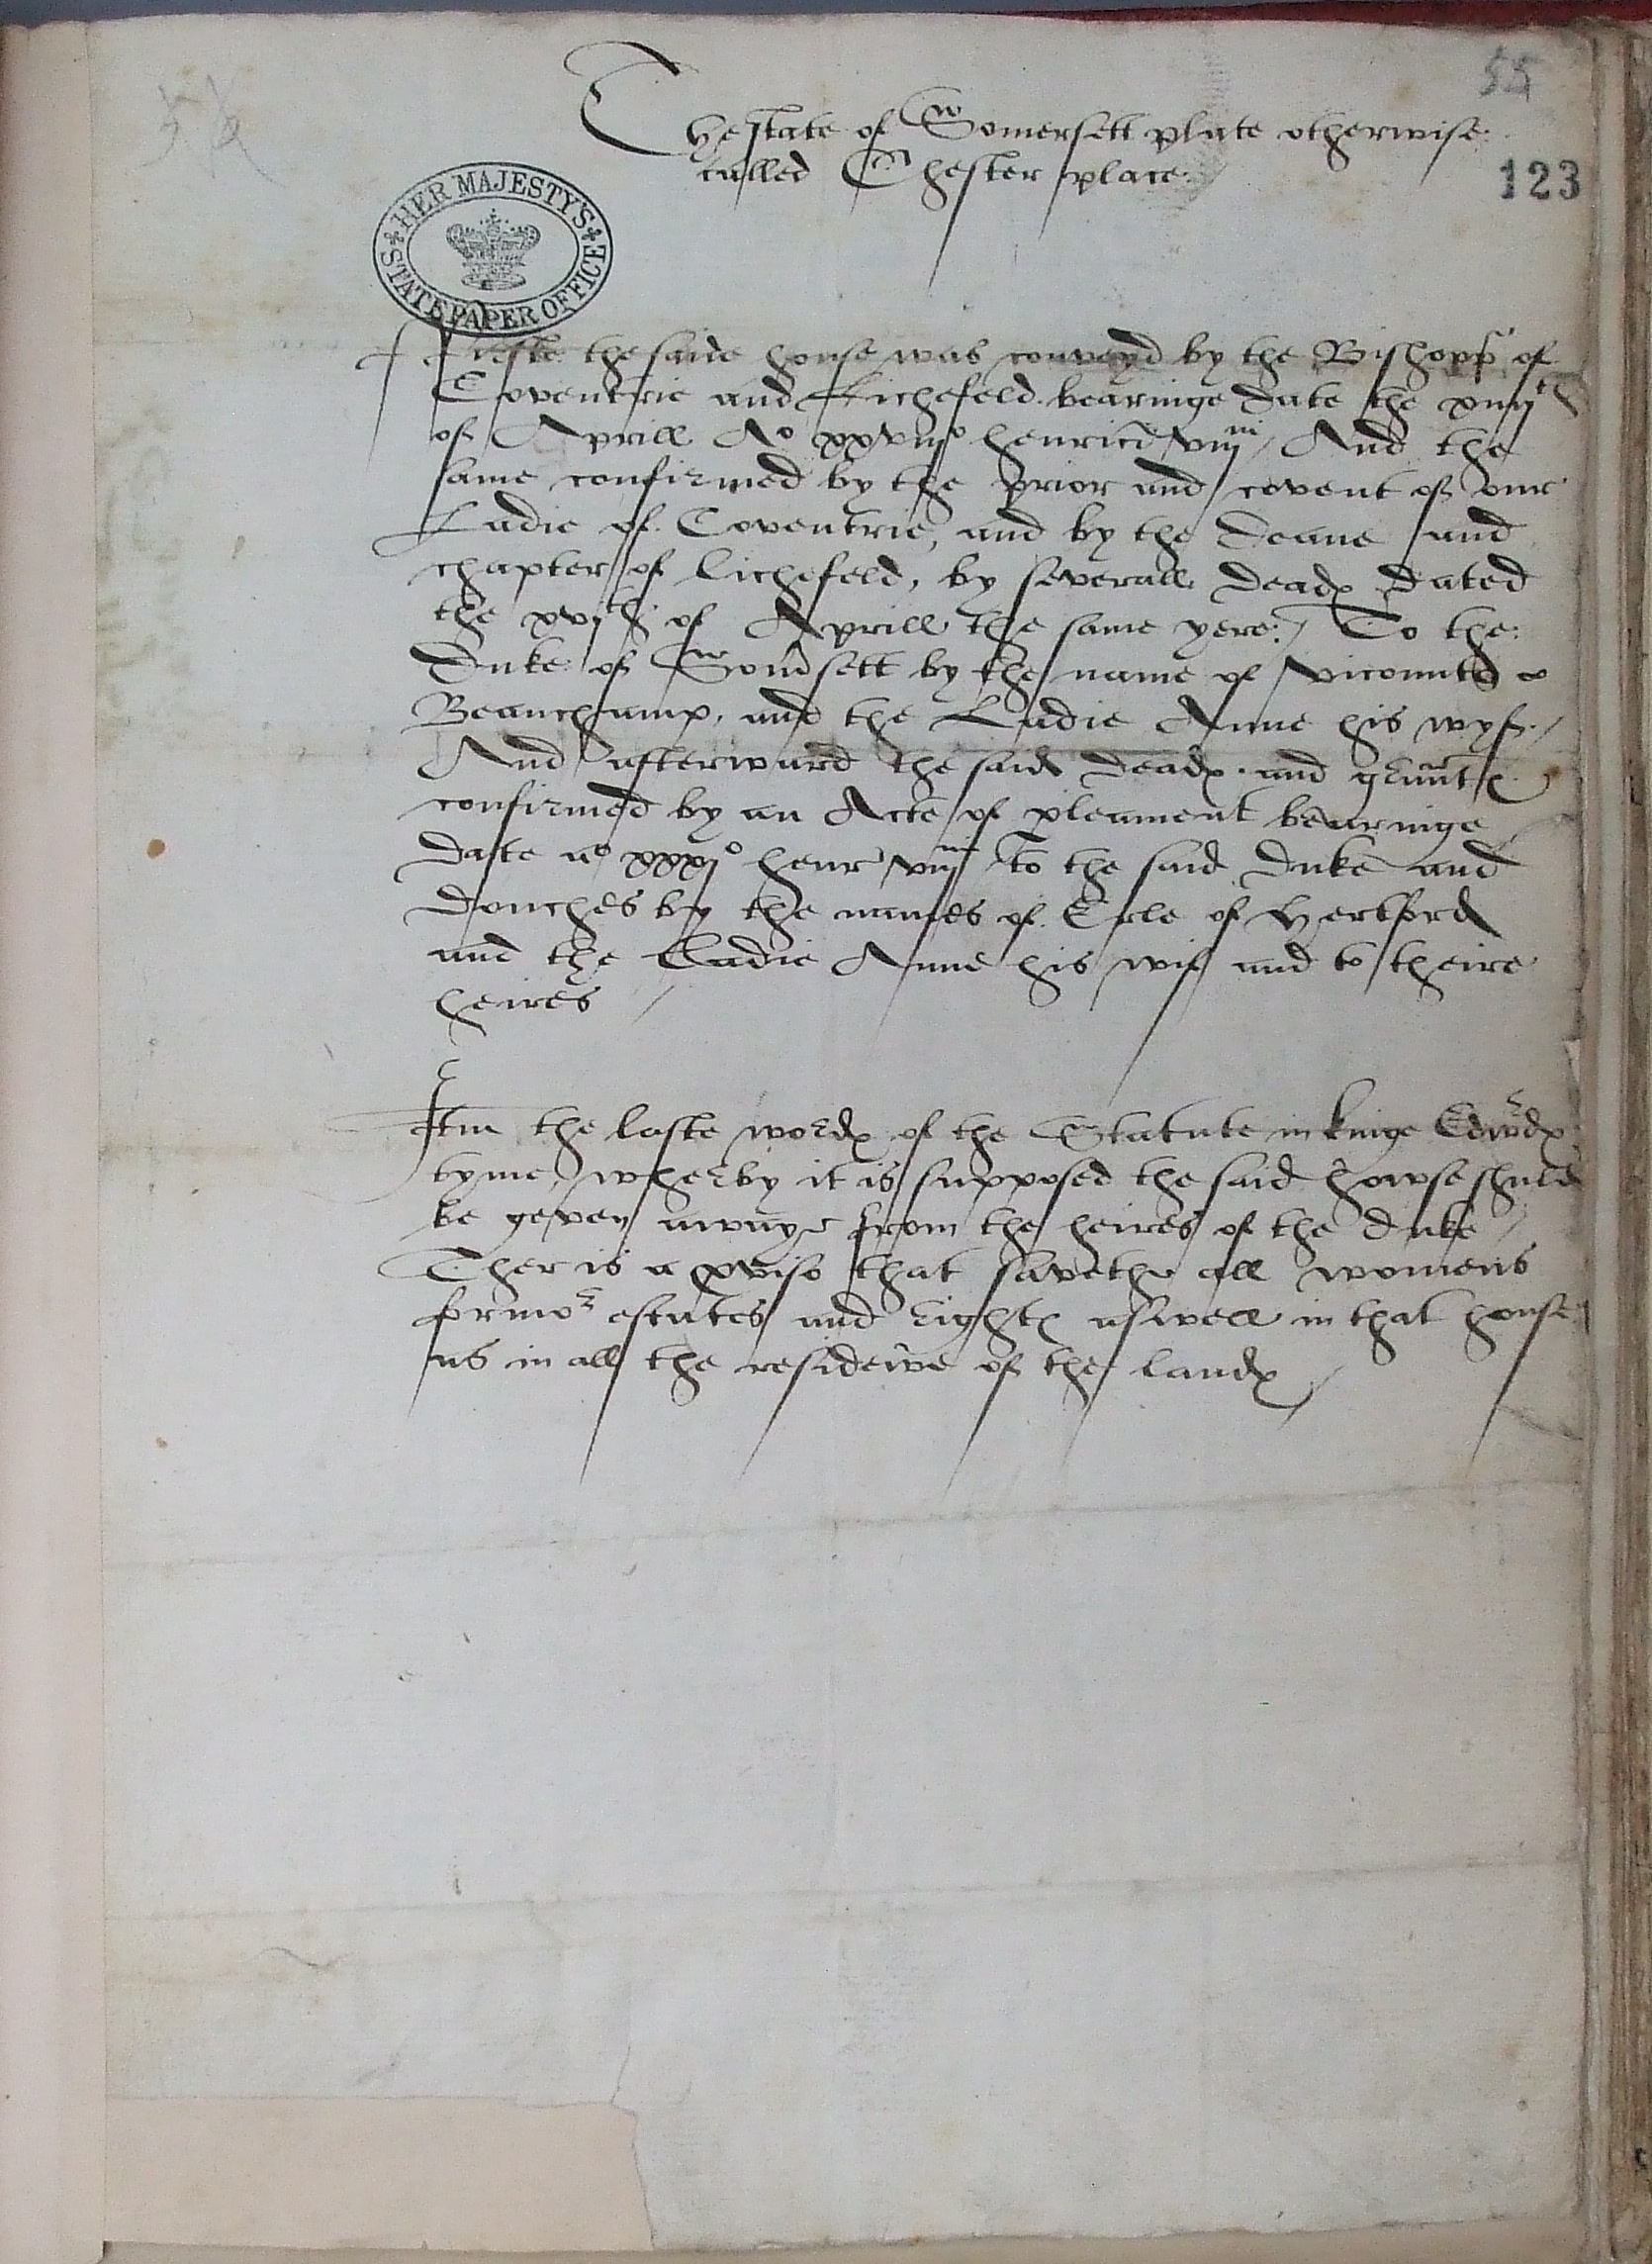 55
The state of Somersett place otherwise
called Chester place
123
HER MAJESTY'S
STATE PAPER OFFICE
Firste the saide house was conveyd by the Bishopp of
Coventrie and Lichefeld bearinge date the xiiijth
of Aprill Ao xxviijo henrici viijui / And the
same confirmed by the prior and covent of our
Ladie of Coventrie, and by the Deane and
chapter of lichefeld, by severall deades dated
the xvjth of Aprill the same yere: / To the
Duke of Som̃sett by the name of vicounte
Beauchamp, and the Ladie Anne his wyf. /
And afterward the said deades and graunts
confirmed by an Acte of pleament bearinge
date ao xxxjo henr viijui to the said duke and
douches by the names of Erle of Hertford
and the Ladie Anne his wif and to theire
heires /
Itm the laste wordes of the Statute in kinge Edwrdes
tyme, wherby it is supposed the said howse shuld
be geven awaye from the heires of the duke /
Ther is a pviso that savethe all womens
former estates and rightes aswell in that house
as in all the residewe of the landes /